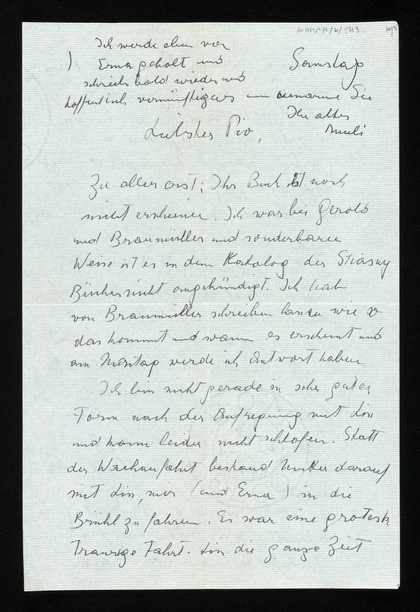 Ich werde eben von
) Erna geholt und
schreib bald wieder und
hoffentlich vernünftigeres umarme Sie
Ihr altes
Samstag
Liebster Pio,
Zu aller erst: Ihr Buch ist noch
nicht erschienen. Ich war bei Gerold
und Braumüller und sonderbarer
Weise ist es in dem Katalog der Stiasny
Bücher nicht angekündigt. Ich hab
von Braumüller schreiben lassen wie
das kommt und wann es erscheint und
am Montag werde ich Antwort haben.
Ich bin nicht gerade in sehr guter
Form nach der Aufregung mit
und kann leider nicht schlafen. Statt
der Wachaufahrt bestand Mutter darauf
mit uns (und Erna) in die
Brühl zu fahren. Es war eine grotesk
traurige Fahrt. die ganze Zeit